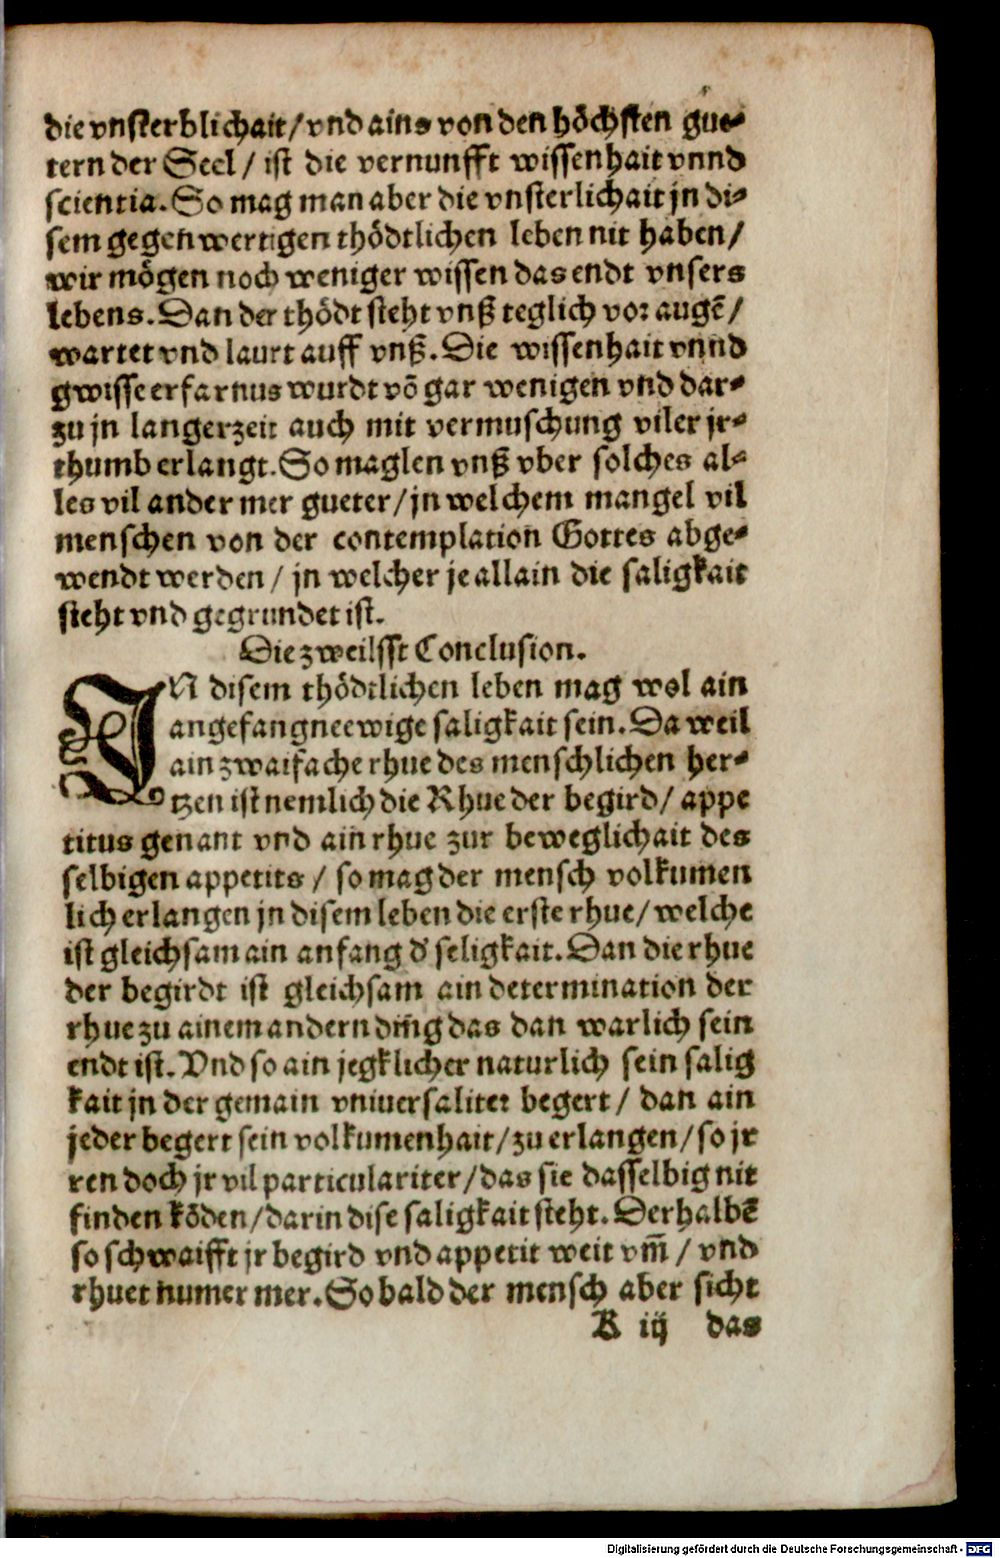 die vnsterblichait/vnd ains von den höchsten gue-
tern der Seel / ist die vernunfft wissenhait vnnd
scientia. So mag man aber die vnsterlichait jn di-
sem gegenwertigen thödtlichen leben nit haben/
wir mögen noch weniger wissen das endt vnsers
lebens. Dan der thödt steht vnß teglich vor augē/
wartet vnd laurt auff vnß. Die wissenhait vnnd
gwisse erfarnus wurdt vō gar wenigen vnd dar-
zu jn langerzeit auch mit vermuschung viler jr-
thumb erlangt. So maglen vnß vber solches al-
les vil ander mer gueter/jn welchem mangel vil
menschen von der contemplation Gottes abge-
wendt werden / jn welcher je allain die saligkait
steht vnd gegrundet ist.
Die zweilfft Conclusion.
JN disem thödtlichen leben mag wol ain
angefangne ewige saligkait sein. Da weil
ain zwaifache rhue des menschlichen her-
tzen ist nemlich die Rhue der begird/ appe
titus genant vnd ain rhue zur beweglichait des
selbigen appetits / so mag der mensch volkumen
lich erlangen jn disem leben die erste rhue/welche
ist gleichsam ain anfang d' seligkait. Dan die rhue
der begirdt ist gleichsam ain determination der
rhue zu ainem andern ding das dan warlich sein
endt ist. Vnd so ain jegklicher naturlich sein salig
kait jn der gemain vniuersaliter begert / dan ain
jeder begert sein volkumenhait/zu erlangen/so jr
ren doch jr vil particulariter/das sie dasselbig nit
finden kōden/darin dise saligkait steht. Derhalbē
so schwaifft jr begird vnd appetit weit vm̄ / vnd
rhuet numer mer. So bald der mensch aber sicht
B iij das
Digitalisierung gefördert durch die Deutsche Forschungsgemeinschaft - DFG